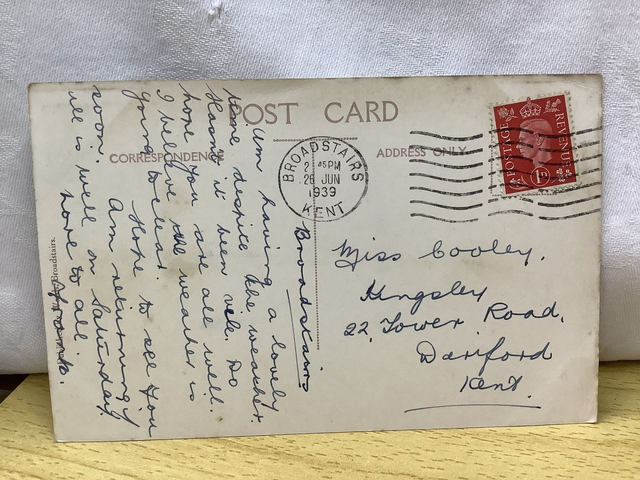 POST CARD
CORRESPONDENCE
ADDRESS ONLY
BROADSTAIRS
2 45PM
26 JUN
1939
KENT
POSTAGE
REVENUE
1D
Broadstairs
Am having a lovely
time despite the weather.
Hasn't it been vile. Do
hope you are all well.
I believe the weather is
going to clear.
Hope to see you
soon. Am returning if
all is well on Saturday
Love to all.
Miss Cooley.
Kingsley
22, Tower Road.
Dartford
Kent.
Broadstairs.